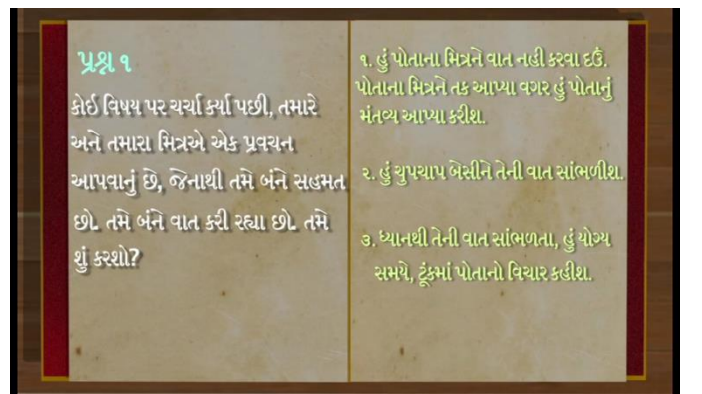 પ્રશ્ન ૧
કોઈ વિષય પર ચર્ચા કર્યા પછી, તમારે
અને તમારા મિત્રએ એક પ્રવચન
આપવાનું છે, જેનાથી તમે બંને સહમત
છો. તમે બંને વાત કરી રહ્યા છો. તમે
શું કરશો?
૧. હું પોતાના મિત્રને વાત નહી કરવા દઉં.
પોતાના મિત્રને તક આપ્યા વગર હું પોતાનું
મંતવ્ય આપ્યા કરીશ.
૨. હું ચુપચાપ બેસીને તેની વાત સાંભળીશ.
૩. ધ્યાનથી તેની વાત સાંભળતા, હું યોગ્ય
સમયે, ટૂંકમાં પોતાનો વિચાર કહીશ.